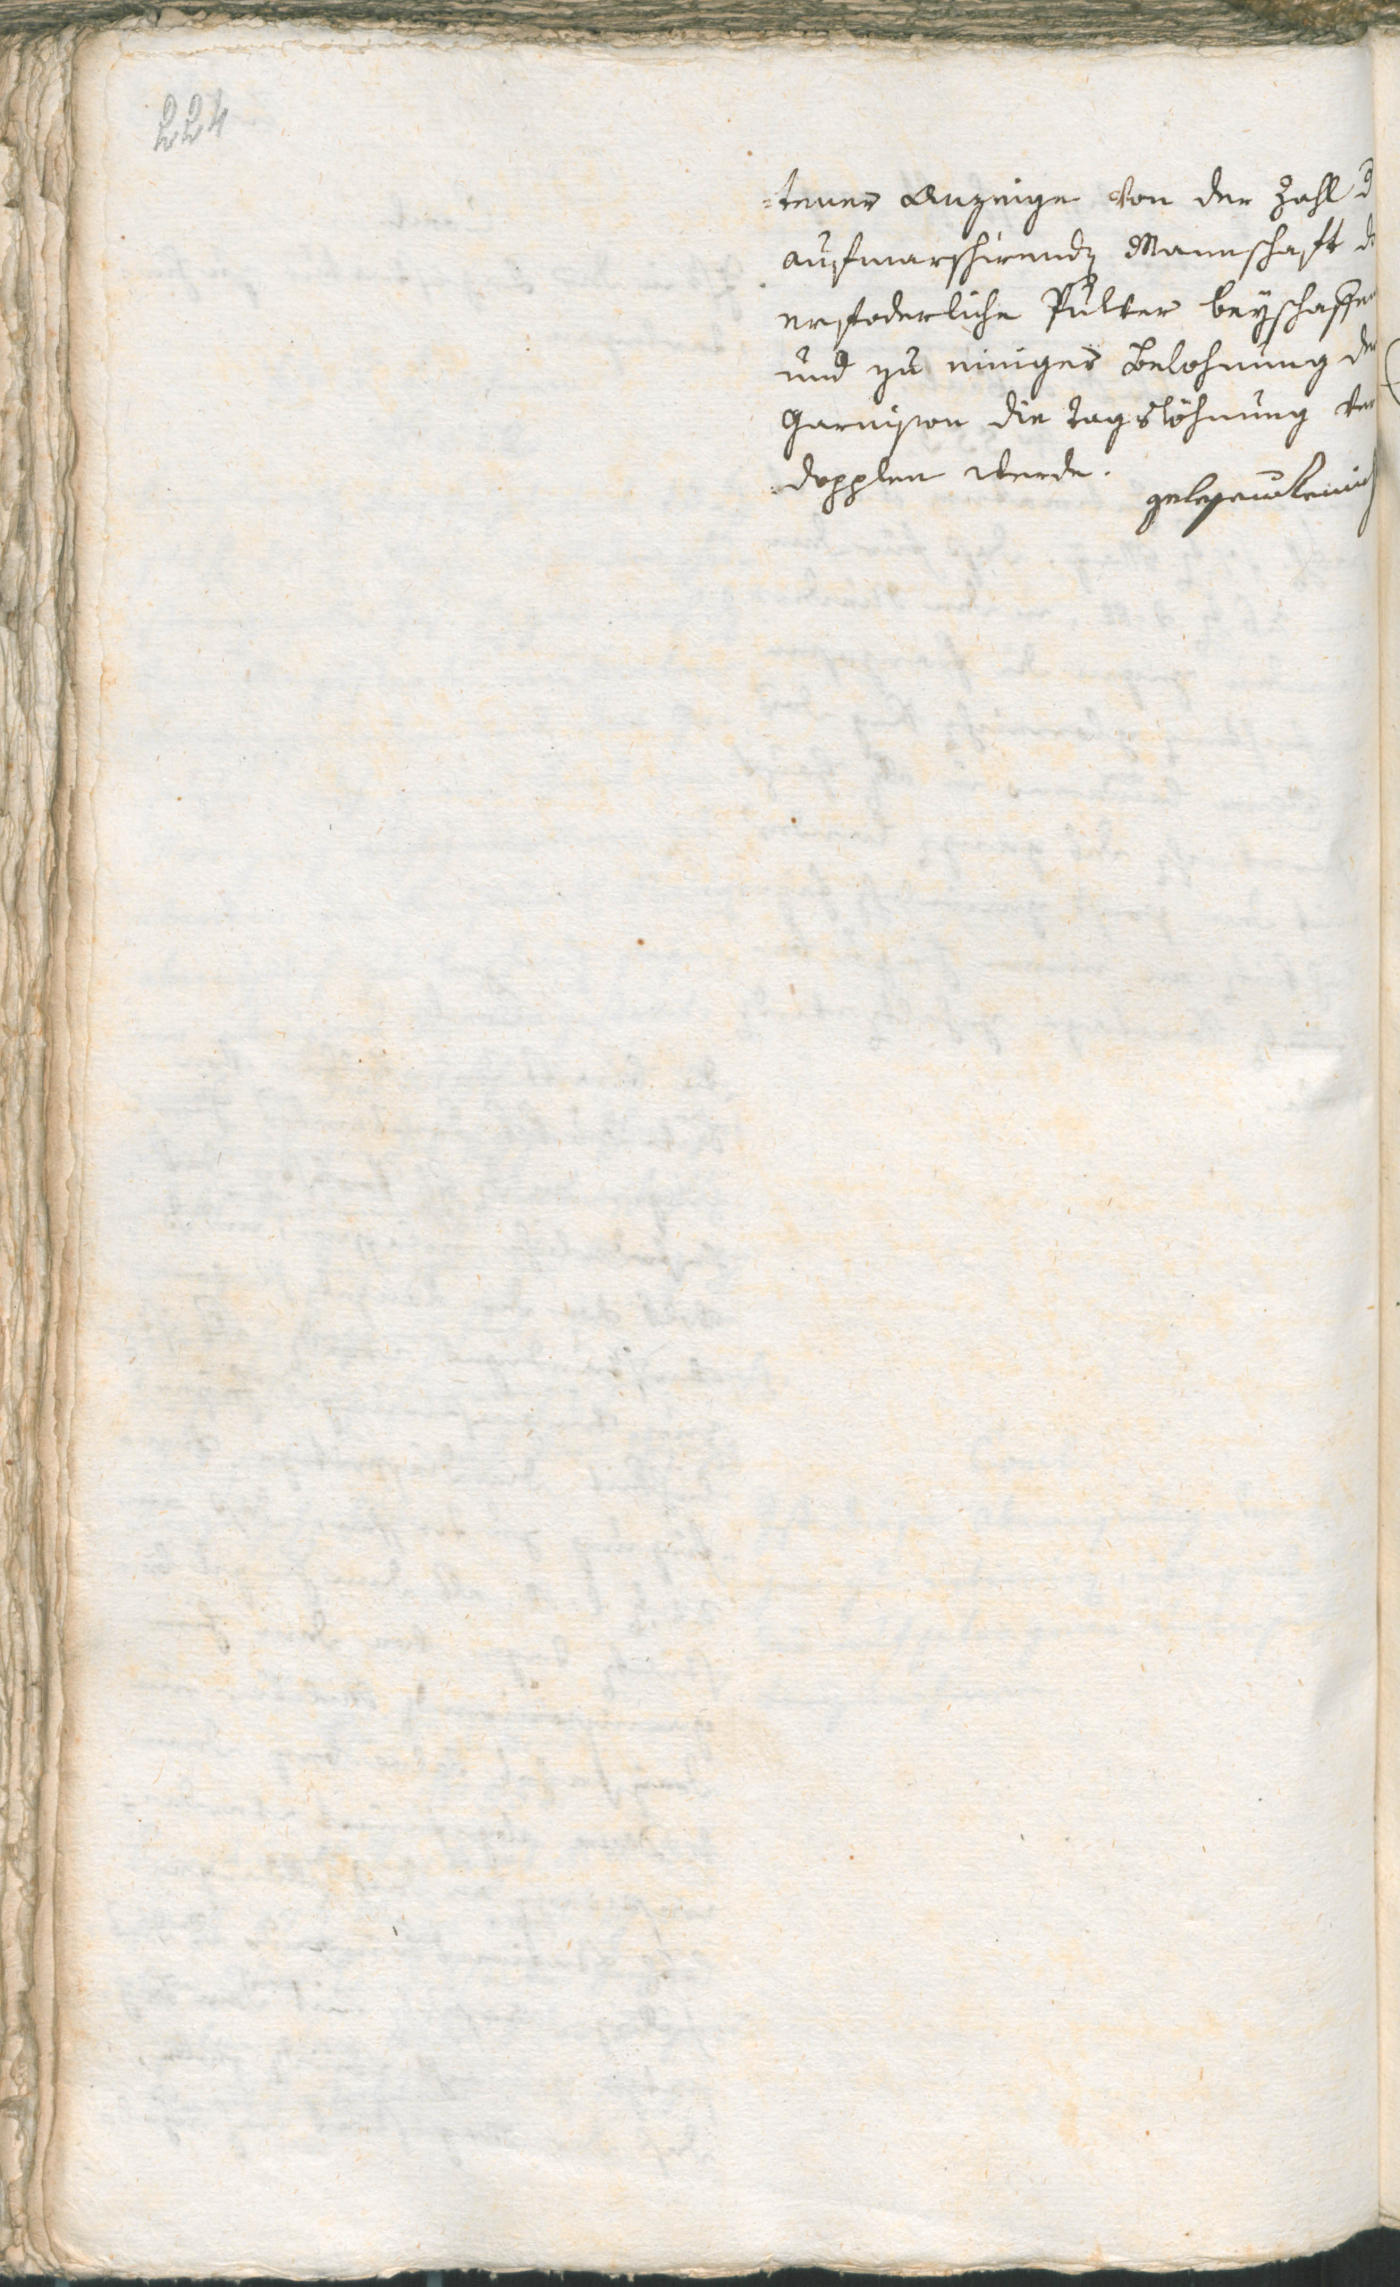 224
=tener Anzeige von der Zahl d
aufmarschirend Mannschaft d
erfoderliche Pulver beyschaffen
und zu einiger Belohnung der
Garnison die Tagslöhnung ver
dopplen werde.